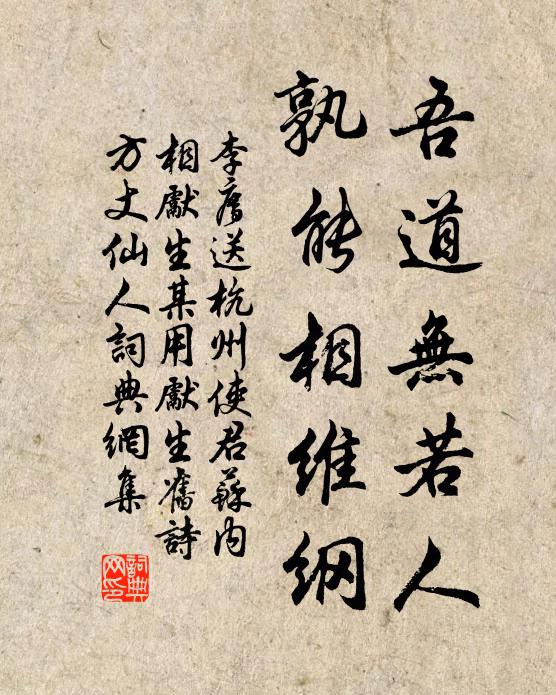 吾道無若人
孰能相維綱
李廌送杭州使君蘇內
相獻生某用獻生舊詩
方丈仙人詞典網集
詞典網印